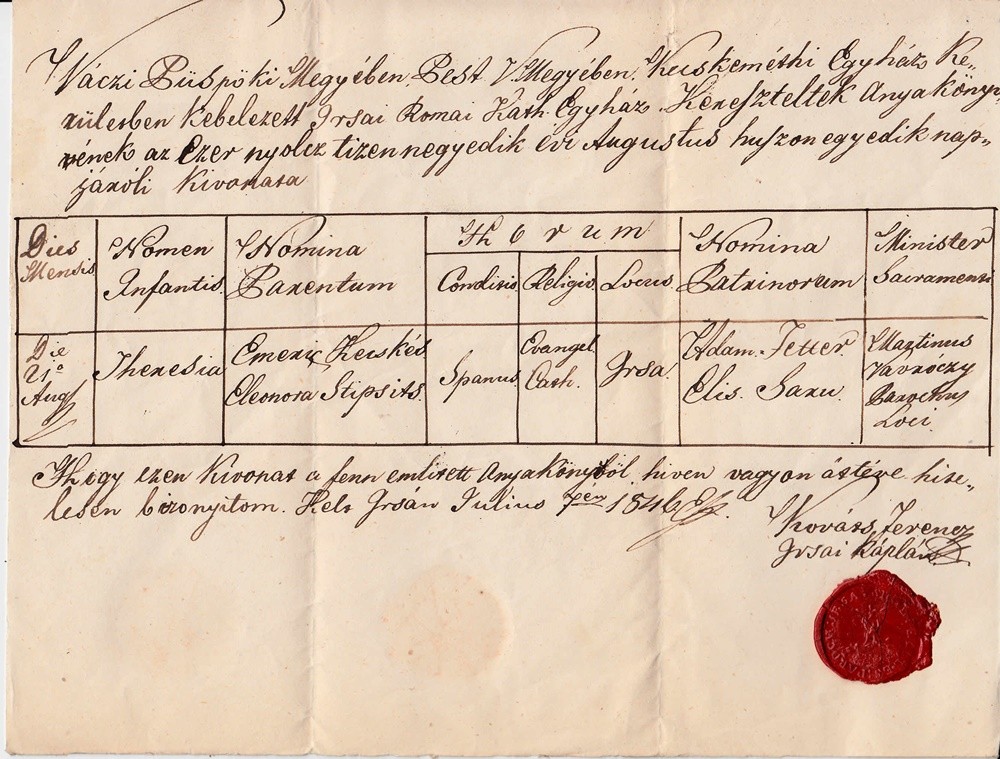 Váczi Püspöki Megyében Pest V. Megyében, Kecskeméthi Egyház Ke„
rületben Kebelezett Irsai Romai Kath. Egyház Kereszteltek Anyaköny„
vének az Ezer nyolcz tizennegyedik évi Augustus huszonegyedik nap„
járóli Kivonata
Dies
Mensis
Nomen
Infantis
Nomina
Parentum
Horum
Conditio
Religio
Locus
Nomina
Patrinorum
Minister
Sacramenti
Die
21º
Aug
Theresia
Emeric Kecskés
Eleonora Stipsits.
Spanus
Evangel.
Cath.
Irsa.
Adam. Fetter
Elis. Saxu.
Martinus
Vavróczy
Parochus
Loci.
Hogy ezen Kivonat a fenn emlitett Anyakönyből hiven vagyon átitéve hite„
lesen bizonyitom. Kelt Irsán Julius 7en 1846
Kováts Ferencz
Irsai Káplán